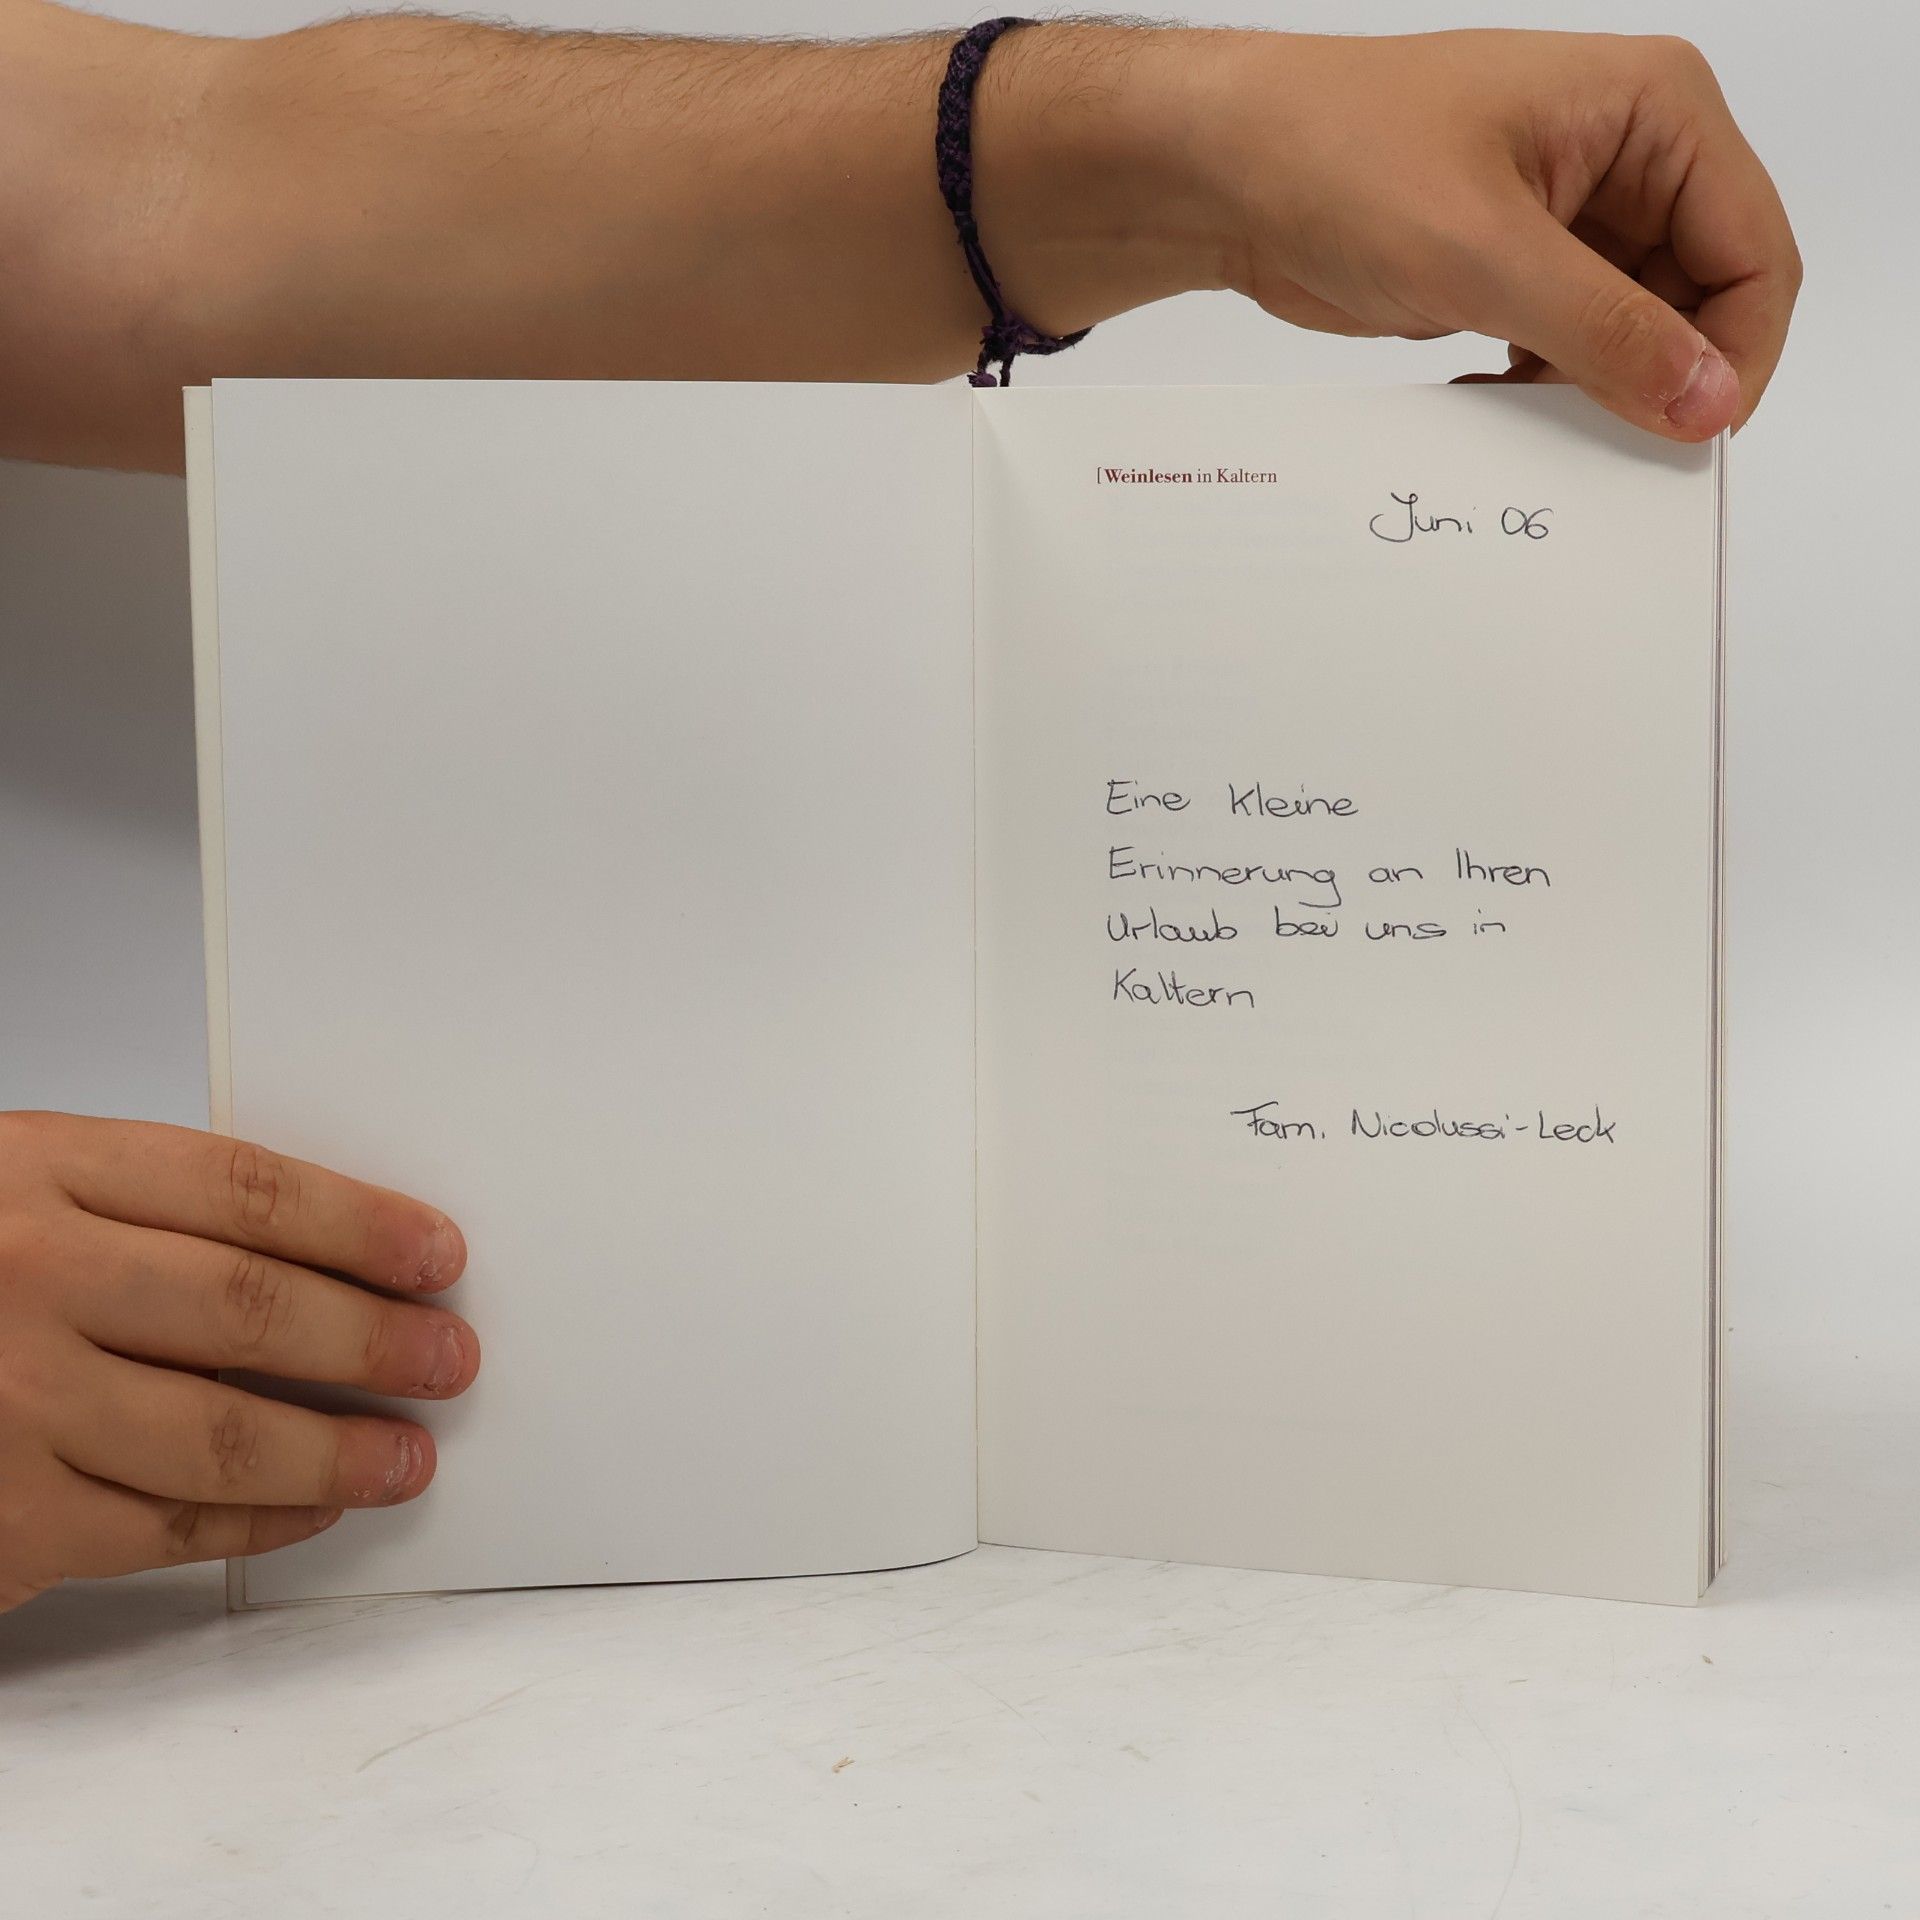 [Weinlesen in Kaltern
Juni 06
Eine Kleine
Erinnerung an Ihren
Urlaub bei uns in
Kaltern
Fam. Nicolussi-Leck